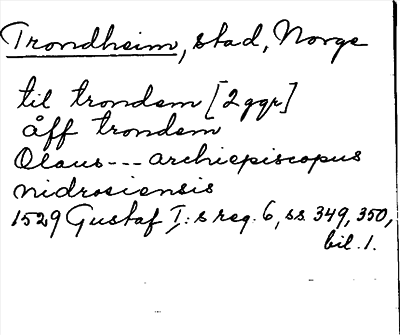 Trondheim, stad, Norge
til trondem [2 ggr]
åff trondem
Olaus --- archiepiscopus
nidrosiensis
1529 Gustaf I:s reg. 6, ss. 349, 350,
bil. 1.